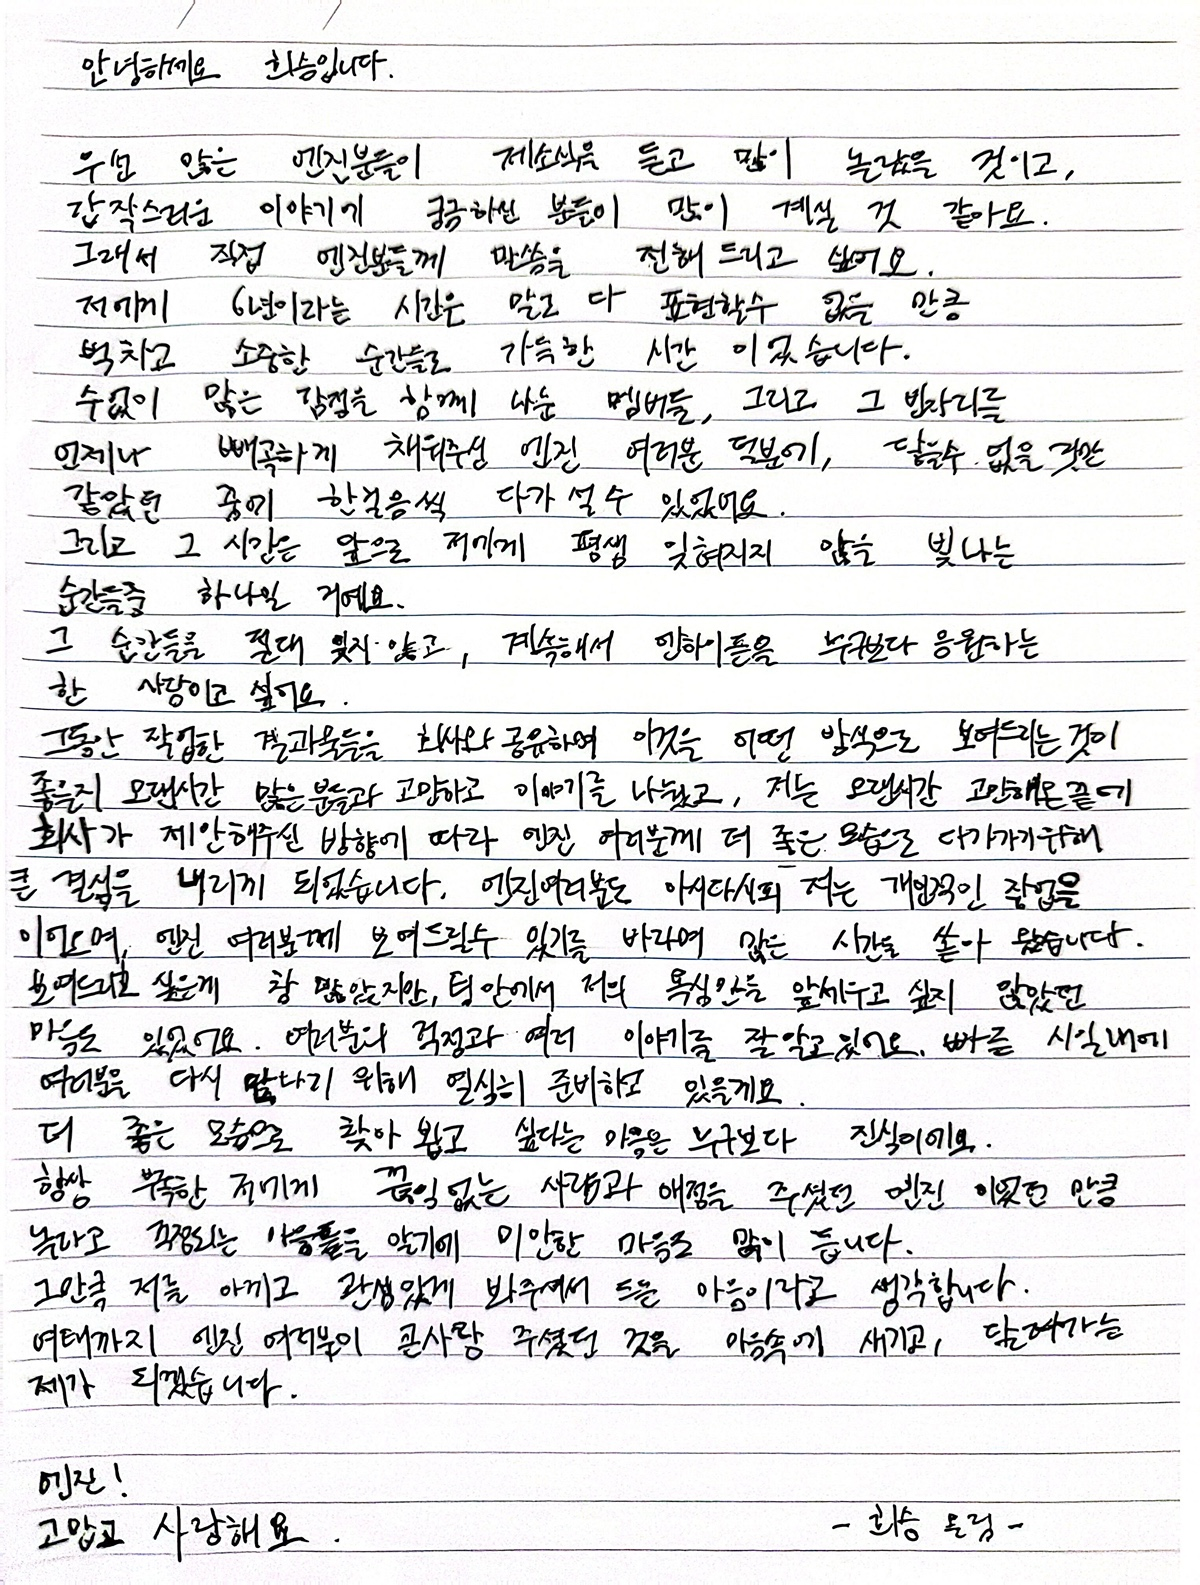 안녕하세요 희승입니다.
우선 많은 엔진분들이 제소식을 듣고 많이 놀랐을 것이고,
갑작스러운 이야기에 궁금하신 분들이 많이 계실 것 같아요.
그래서 직접 엔진분들께 말씀을 전해드리고 싶어요.
저에게 6년이라는 시간은 말로 다 표현할수 없을 만큼
벅차고 소중한 순간들로 가득한 시간 이었습니다.
수없이 많은 감정을 함께 나눈 멤버들, 그리고 그 빈자리를
언제나 빼곡하게 채워주신 엔진 여러분 덕분에, 닿을수 없을 것만
같았던 꿈에 한걸음씩 다가 설 수 있었어요.
그리고 그 시간은 앞으로 저에게 평생 잊혀지지 않을 빛나는
순간들중 하나일 거예요.
그 순간들을 절대 잊지 않고, 계속해서 엔하이픈을 누구보다 응원하는
한 사람이고 싶어요.
그동안 작업한 결과물들을 회사와 공유하며 이것을 어떤 방식으로 보여드리는것이
좋을지 오랜시간 많은분들과 고민하고 이야기를 나눴고, 저는 오랜시간 고민해온끝에
회사가 제안해주신 방향에 따라 엔진 여러분께 더 좋은 모습으로 다가가기위해
큰 결심을 내리게 되었습니다. 엔진여러분도 아시다시피 저는 개인적인 작업을
이어오며, 엔진 여러분께 보여드릴수 있기를 바라며 많은 시간을 쏟아 왔습니다.
보여드리고 싶은게 참 많았지만, 팀 안에서 저의 욕심만을 앞세우고 싶지 않았던
마음도 있었어요. 여러분의 걱정과 여러 이야기를 잘 알고있어요. 빠른 시일내에
여러분을 다시 만나기 위해 열심히 준비하고 있을게요.
더 좋은 모습으로 찾아 뵙고 싶다는 마음은 누구보다 진심이에요.
항상 부족한 저에게 끊임없는 사랑과 애정을 주셨던 엔진 이었던 만큼
놀라고 걱정되는 마음들을 알기에 미안한 마음도 많이 듭니다.
그만큼 저를 아끼고 관심있게 봐주셔서 드는 마음이라고 생각합니다.
여태까지 엔진 여러분이 큰사랑 주셨던 것을 마음속에 새기고, 달려가는
제가 되겠습니다.
엔진!
고맙고 사랑해요.
- 희승 올림 -